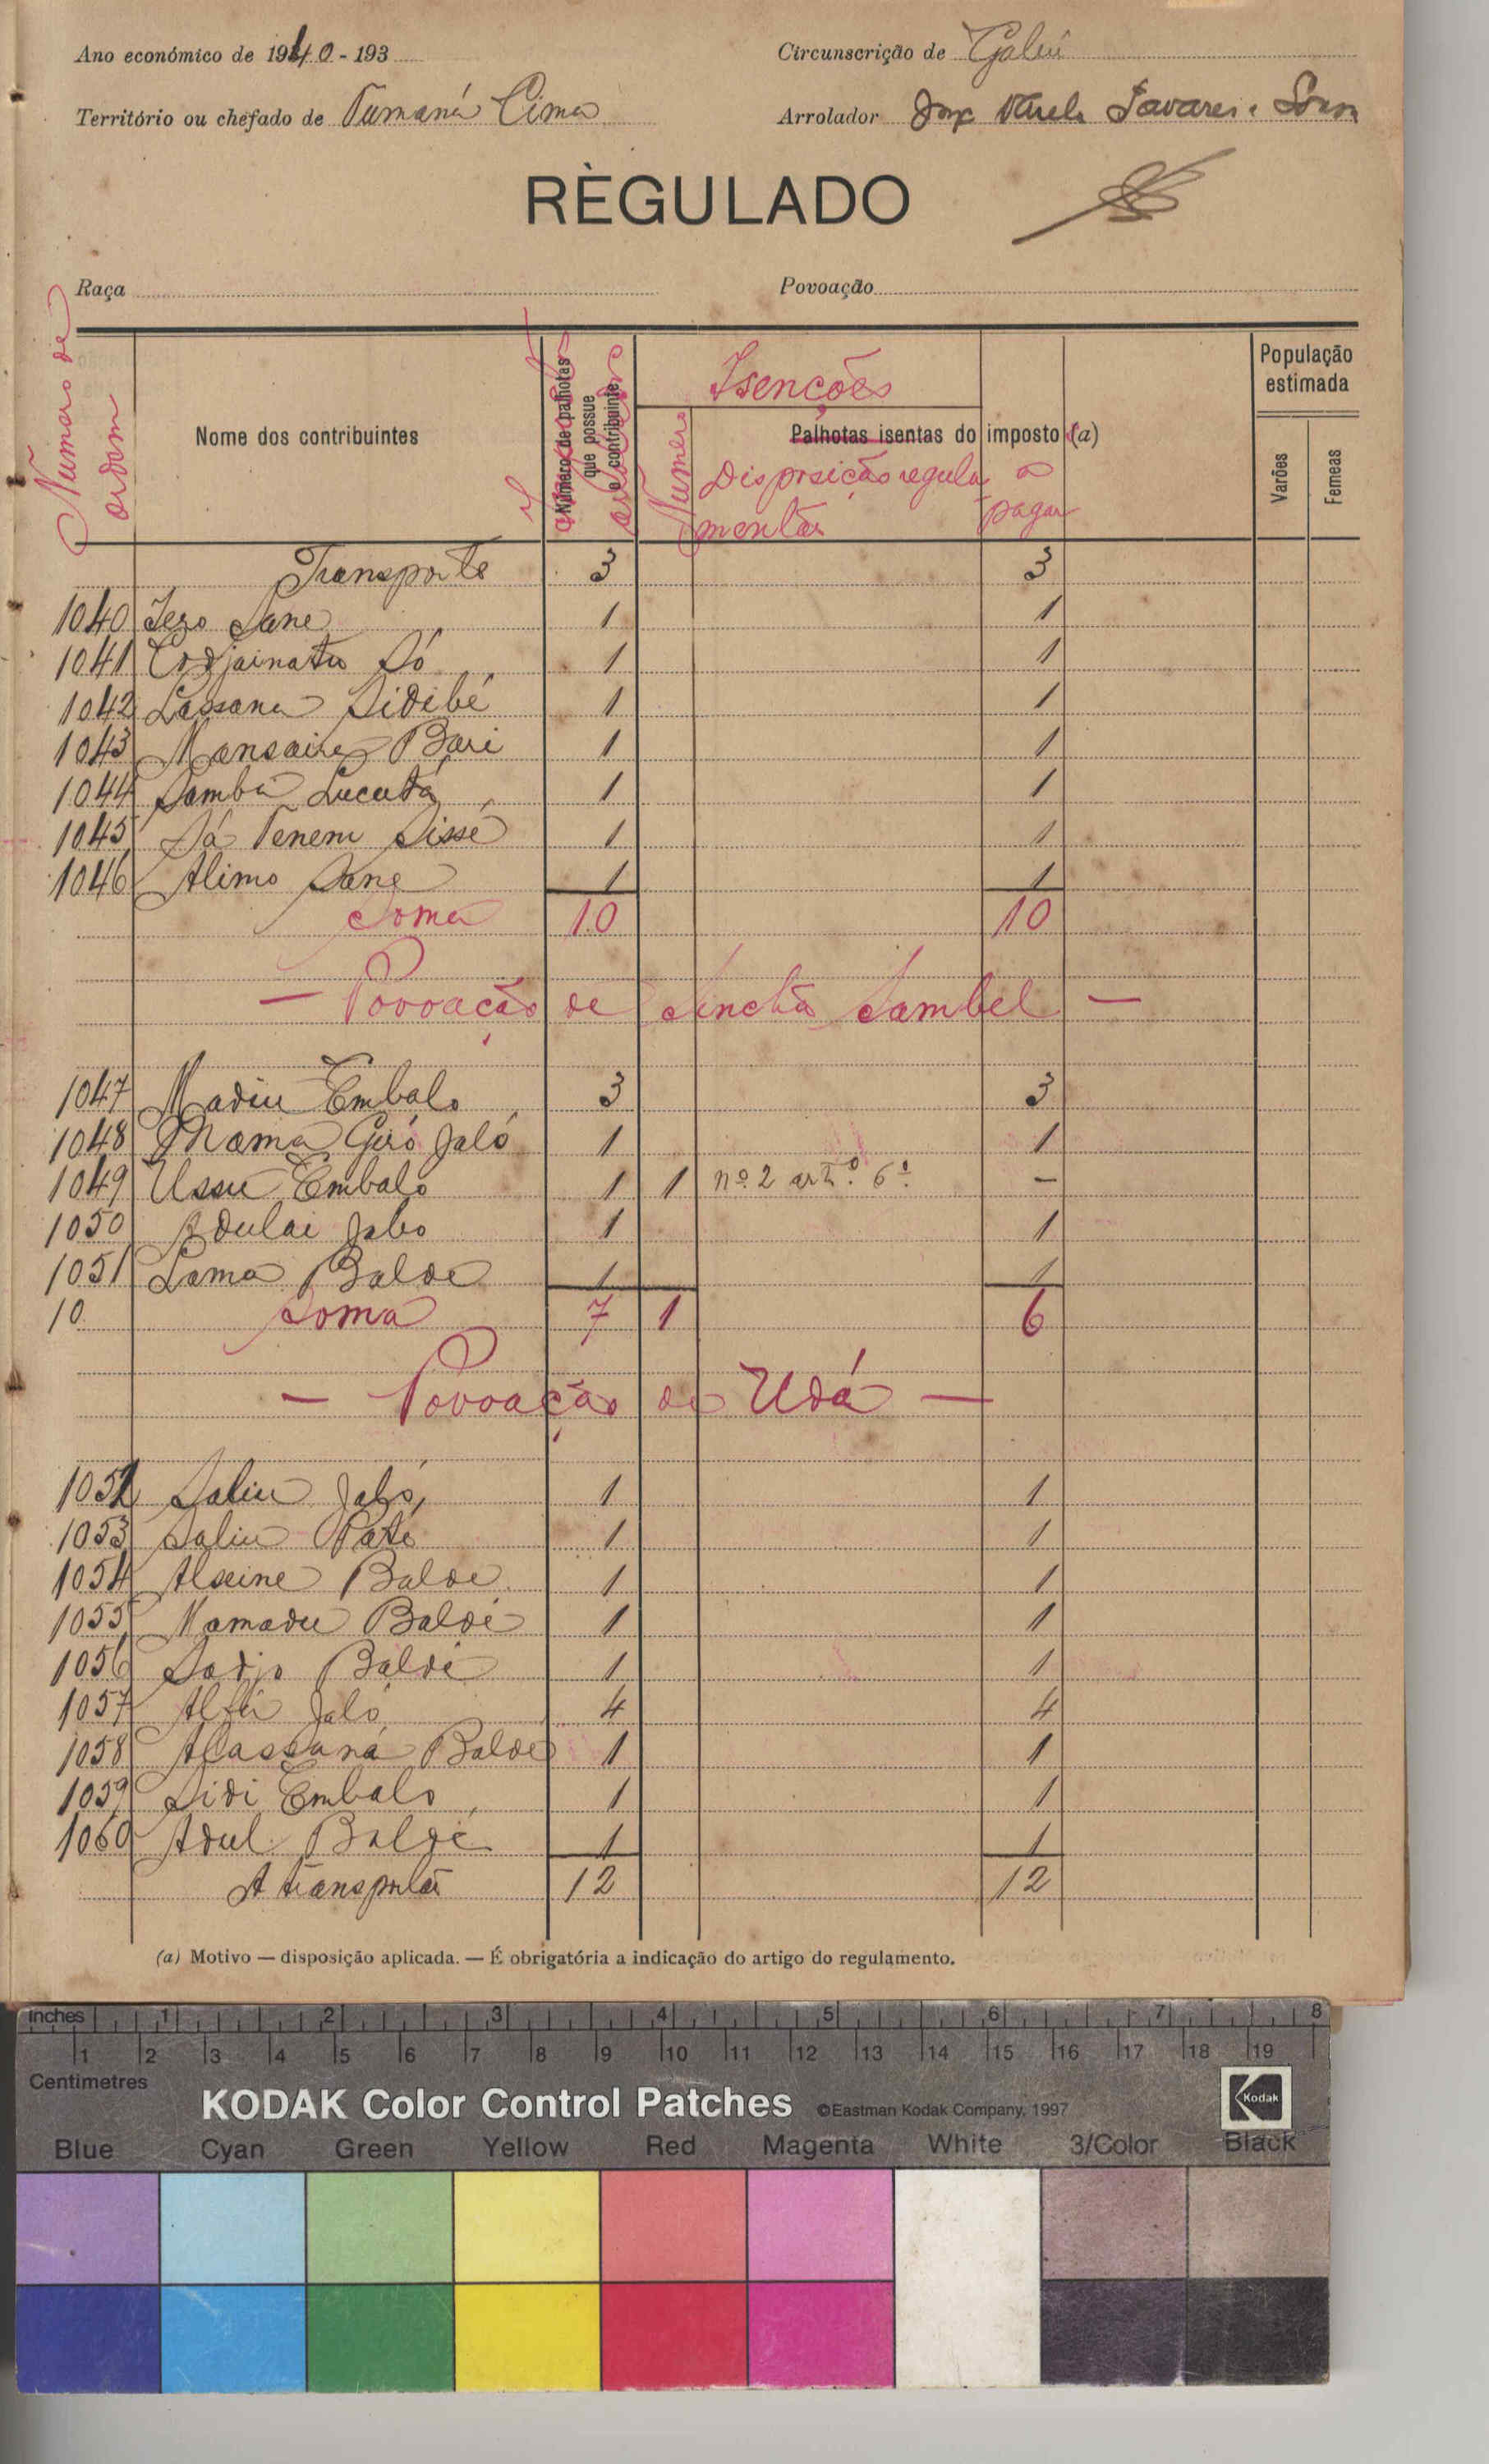 Ano económico de 1940-193
Circunscrição de Gabú
Território ou chefado de Tumaná Cima
Arrolador Tavares e Sousa
RÈGULADO
Raça
Povoação
Número de ordem
Nome dos contribuintes
Número de palhotas que possue o contribuinte
Isenções
Número
Palhotas isentas do imposto (a)
Disposição regulamentar
a pagar
População estimada
Varões
Femeas
Transporte 3 3
1040 Sane 1 1
1041 Só 1 1
1042 Lassana Sidibé 1 1
1043 Mansaire Bari 1 1
1044 Samba 1 1
1045 Sá Tenem Sissé 1 1
1046 Alimo Sane 1 1
Soma 10 10
— Povoação de Sinchã Sambel —
1047 Madiu Embalo 3 3
1048 Mama Giró Jaló 1 1
1049 Ussu Embalo 1 1 nº 2 artº. 6º. -
1050 Adulai Jabo 1 1
1051 Lama Balde 1 1
10 Soma 7 1 6
— Povoação de Udá —
1052 Saliu Jaló 1 1
1053 Saliu Paté 1 1
1054 Alseine Balde 1 1
1055 Mamadu Baldé 1 1
1056 Sadjo Baldé 1 1
1057 Alfa Jaló 4 4
1058 Alassana Balde 1 1
1059 Sidi Embalo 1 1
1060 Adul Baldé 1 1
A transportar 12 12
(a) Motivo — disposição aplicada. — É obrigatória a indicação do artigo do regulamento.
inches 1 2 3 4 5 6 7 8
1 2 3 4 5 6 7 8 9 10 11 12 13 14 15 16 17 18 19
Centimetres
KODAK Color Control Patches ©Eastman Kodak Company, 1997 Kodak
Blue Cyan Green Yellow Red Magenta White 3/Color Black